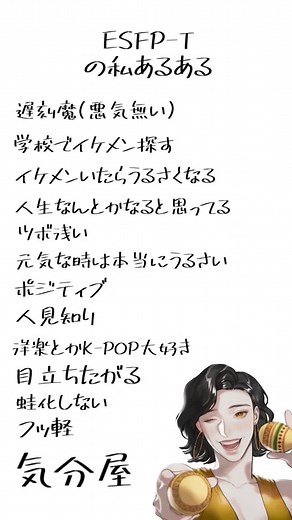 ESFP-T
の私あるある
遅刻魔(悪気無い)
学校でイケメン探す
イケメンいたらうるさくなる
人生なんとかなると思ってる
ツボ浅い
元気な時は本当にうるさい
ポジティブ
人見知り
洋楽とかK-POP大好き
目立ちたがる
蛙化しない
フッ軽
気分屋